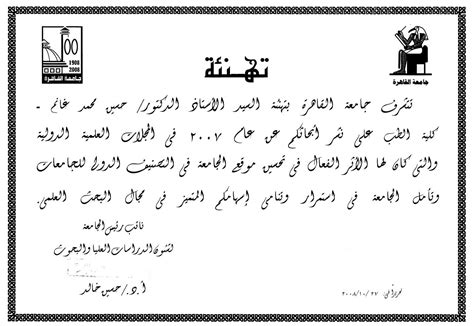 تهنئة
100
1908
2008
جامعة القاهرة
جامعة القاهرة
تشرف جامعة القاهرة بتهنئة السيد الأستاذ الدكتور/ حسين محمد غانم -
كلية الطب على نشر أبحاثكم عن عام ٢٠٠٧ فى المجلات العلمية الدولية
والتى كان لها الأثر الفعال فى تحسين موقع الجامعة فى التصنيف الدولى للجامعات
وتأمل الجامعة فى استمرار وتنامى إسهامكم المتميز فى مجال البحث العلمى.
نائب رئيس الجامعة
لشئون الدراسات العليا والبحوث
أ.د/ حسين خالد
تحريراً فى: ٢٧ / ١٠ / ٢٠٠٨